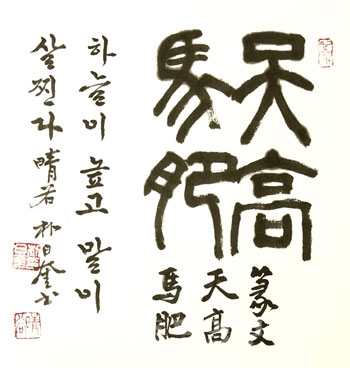 天高
馬肥
篆文
天高
馬肥
하늘이 높고 말이
살찐다 晴若 朴日奎書